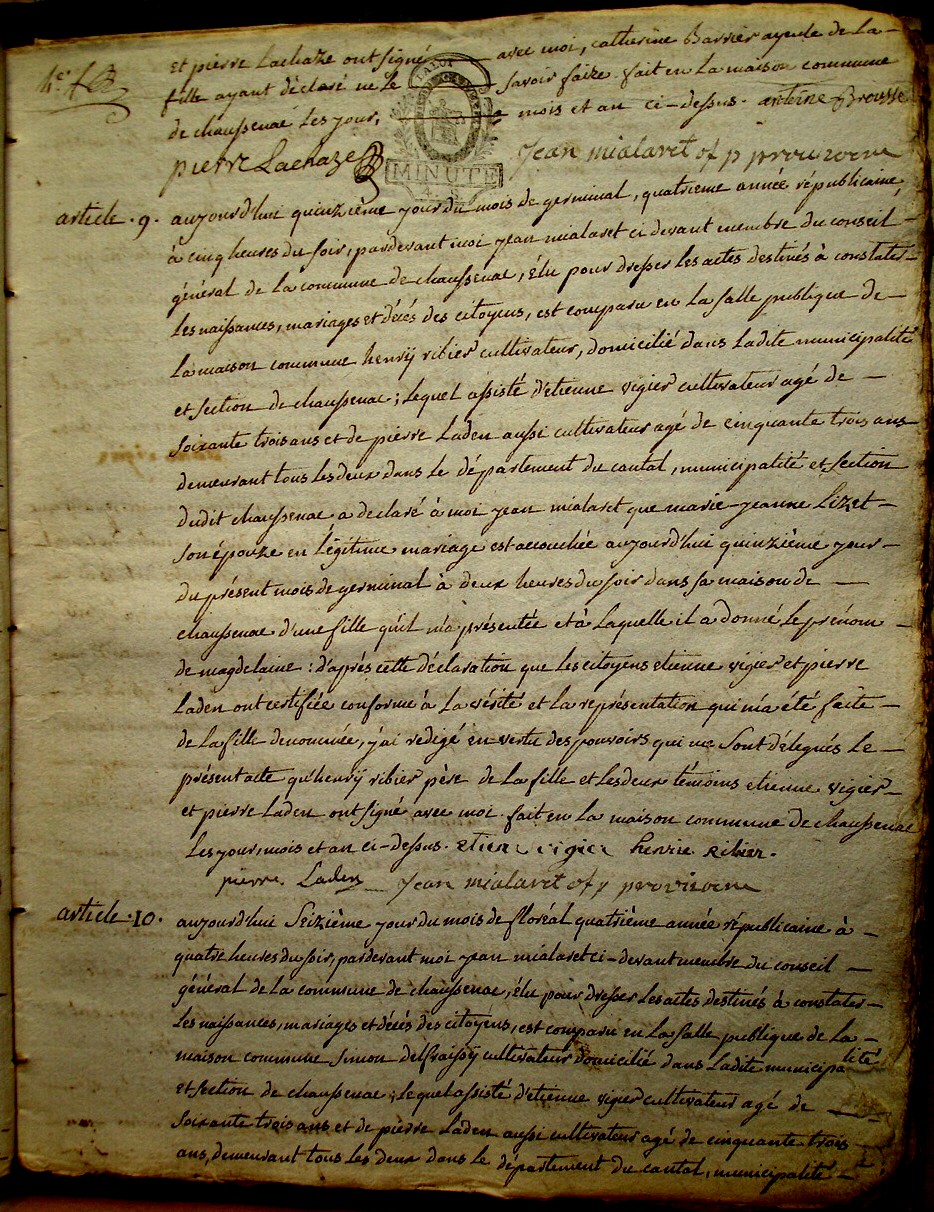 et pierre Lachaze ont signé avec moi, catherine Barrier ayeule de La
fille ayant déclaré ne le savoir faire. fait en La maison commune
de chaussenac Les jour, mois et an ci-dessus. antoine Brousse
pierre Lachaze jean mialaret of p provisoire
LA LOI
MINUTE
article .9. aujourd'hui quinzième jour du mois de germinal, quatrieme année républicaine,
à cinq heures du soir, pardevant moi jean mialaret ci devant membre du conseil
général de La commune de chaussenac, élu pour dresser Les actes destinés à constater
Les naissances, mariages et décés des citoyens, est comparu en La salle publique de
La maison commune henrÿ ribier cultivateur, domicilié dans Ladite municipalité
et section de chaussenac; Lequel assisté d'etienne vigier cultivateur agé de
soixante trois ans et de pierre Laden aussi cultivateur agé de cinquante trois ans
demeurant tous Les deux dans Le département du cantal, municipalité et section
dudit chaussenac a declaré à moi jean mialaret que marie-jeanne Lizet
son épouze en Légitime mariage est accouchée aujourd'hui quinzième jour
du présent mois de germinal à deux heures du soir dans sa maison de
chaussenac d'une fille qu'il m'a présentée et à Laquelle il a donné Le prénom
de magdelaine : d'après cette déclaration que Les citoyens etienne vigier et pierre
Laden ont certifiée conforme à La vérité et La réprésentation qui m'a été faite
de La fille denommée, j'ai redigé en vertu des pouvoirs qui me sont délegués Le
présent acte qu'henrÿ ribier père de La fille et Les deux témoins etienne vigier
et pierre Laden ont signé avec moi. fait en La maison commune de chaussenac
Les jour, mois et an ci-dessus. etiene vigier henrie Ribier.
pierre Laden jean mialaret of p provisoire
article .10. aujourd'hui seizième jour du mois de floréal quatrième année républicaine à
quatre heures du soir, pardevant moi jean mialaret ci-devant membre du conseil
général de La commune de chaussenac, élu pour dresser Les actes destinés à constater
Les naissances, mariages et décés des citoyens, est comparu en La salle publique de La
maison commune simon delfraissÿ cultivateur domicilié dans Ladite municipalité
et section de chaussenac ; Lequel assisté d'etienne vigier cultivateur agé de
soixante trois ans et de pierre Laden aussi cultivateur agé de cinquante trois
ans, demeurant tous Les deux dans Le département du cantal, municipalité